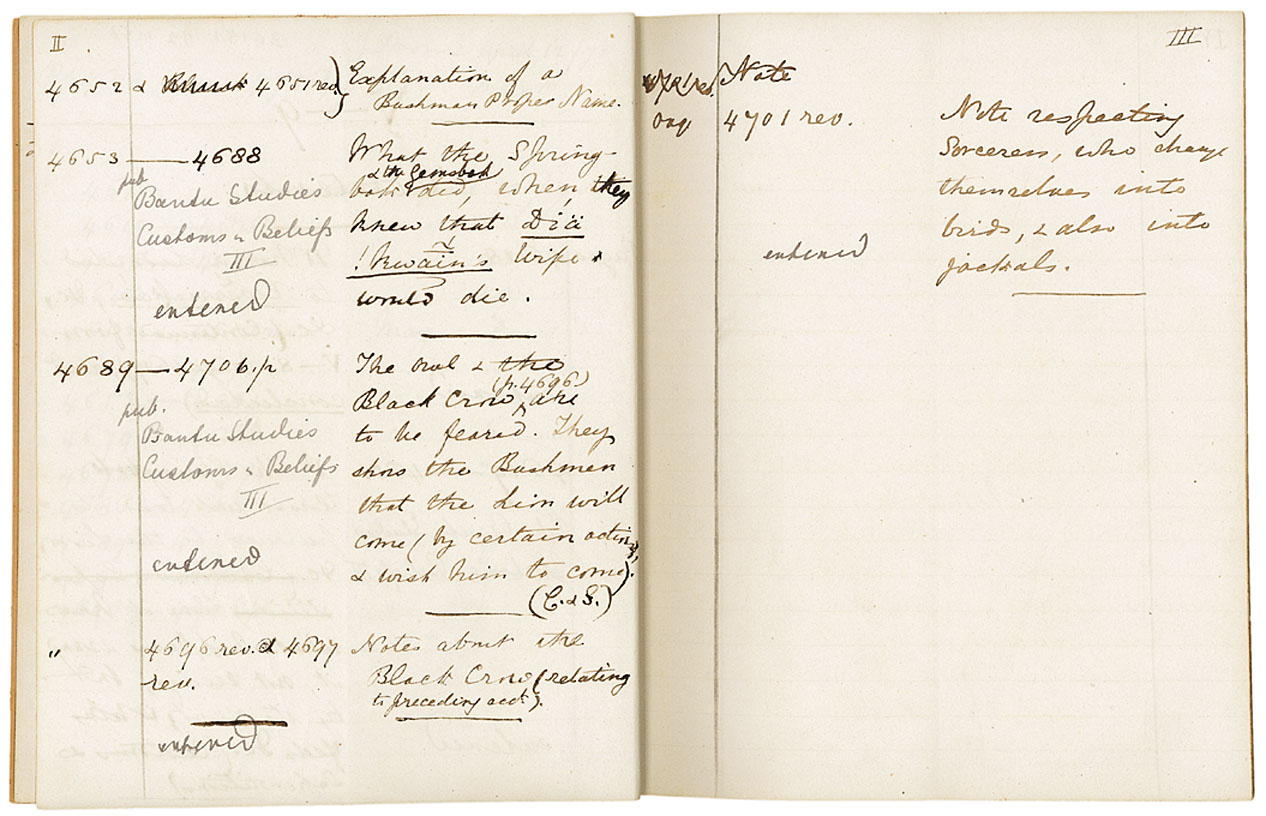 II.
4652 & 4651 rev.) Explanation of a
Bushman Proper Name.
4653 — 4688 What the Spring-
& the Gemsbok
bok did, when they
pub.
Bantu Studies
Customs & Beliefs
III
entered
knew that Diä
!kwain's wife
would die.
4689 — 4706.p The owl & the
(p. 4696)
Black Crow are
pub.
Bantu Studies
Customs & Beliefs
III
entered
to be feared. They
show the Bushmen
that the Lion will
come (by certain actions,
& wish him to come).
(C. & S.)
" 4696 rev. & 4697 Notes about the
rev. Black Crow (relating
to preceding acct.).
entered
III
Note
4701 rev. Note respecting
Sorcerers, who change
themselves into
birds, & also into
jackals.
entered